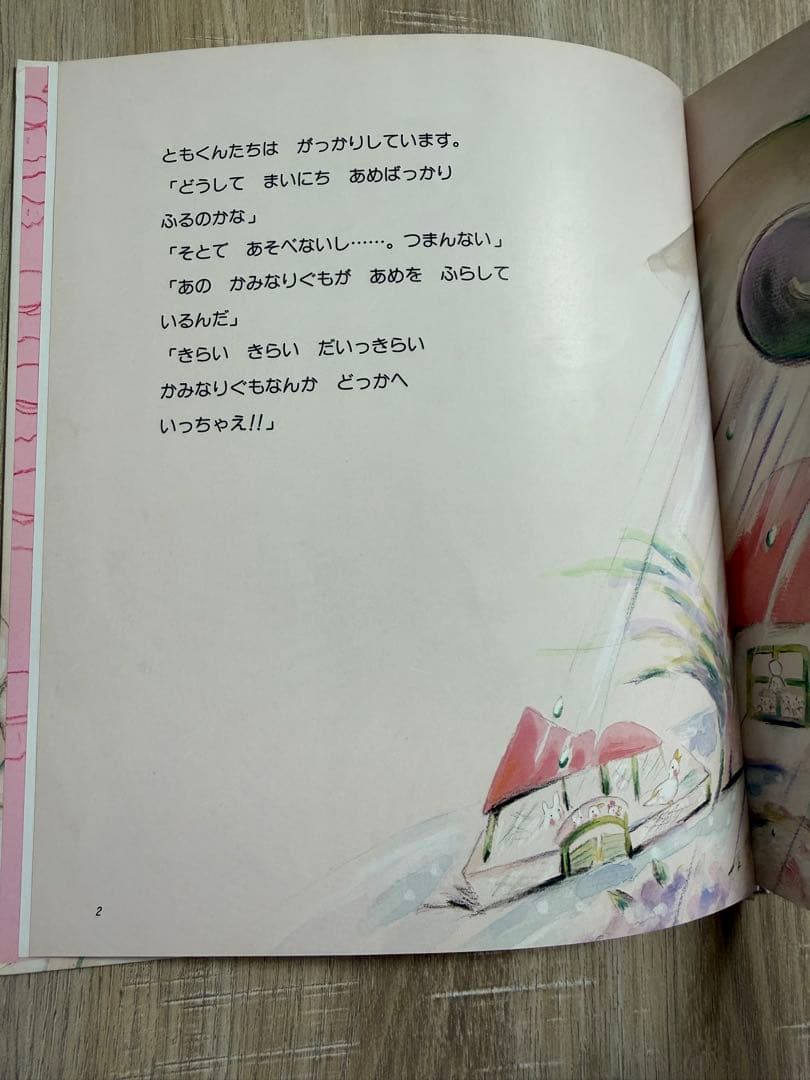 ともくんたちは　がっかりしています。
「どうして　まいにち　あめばっかり
ふるのかな」
「そとで　あそべないし……。つまんない」
「あの　かみなりぐもが　あめを　ふらして
いるんだ」
「きらい　きらい　だいっきらい
かみなりぐもなんか　どっかへ
いっちゃえ!!」
2